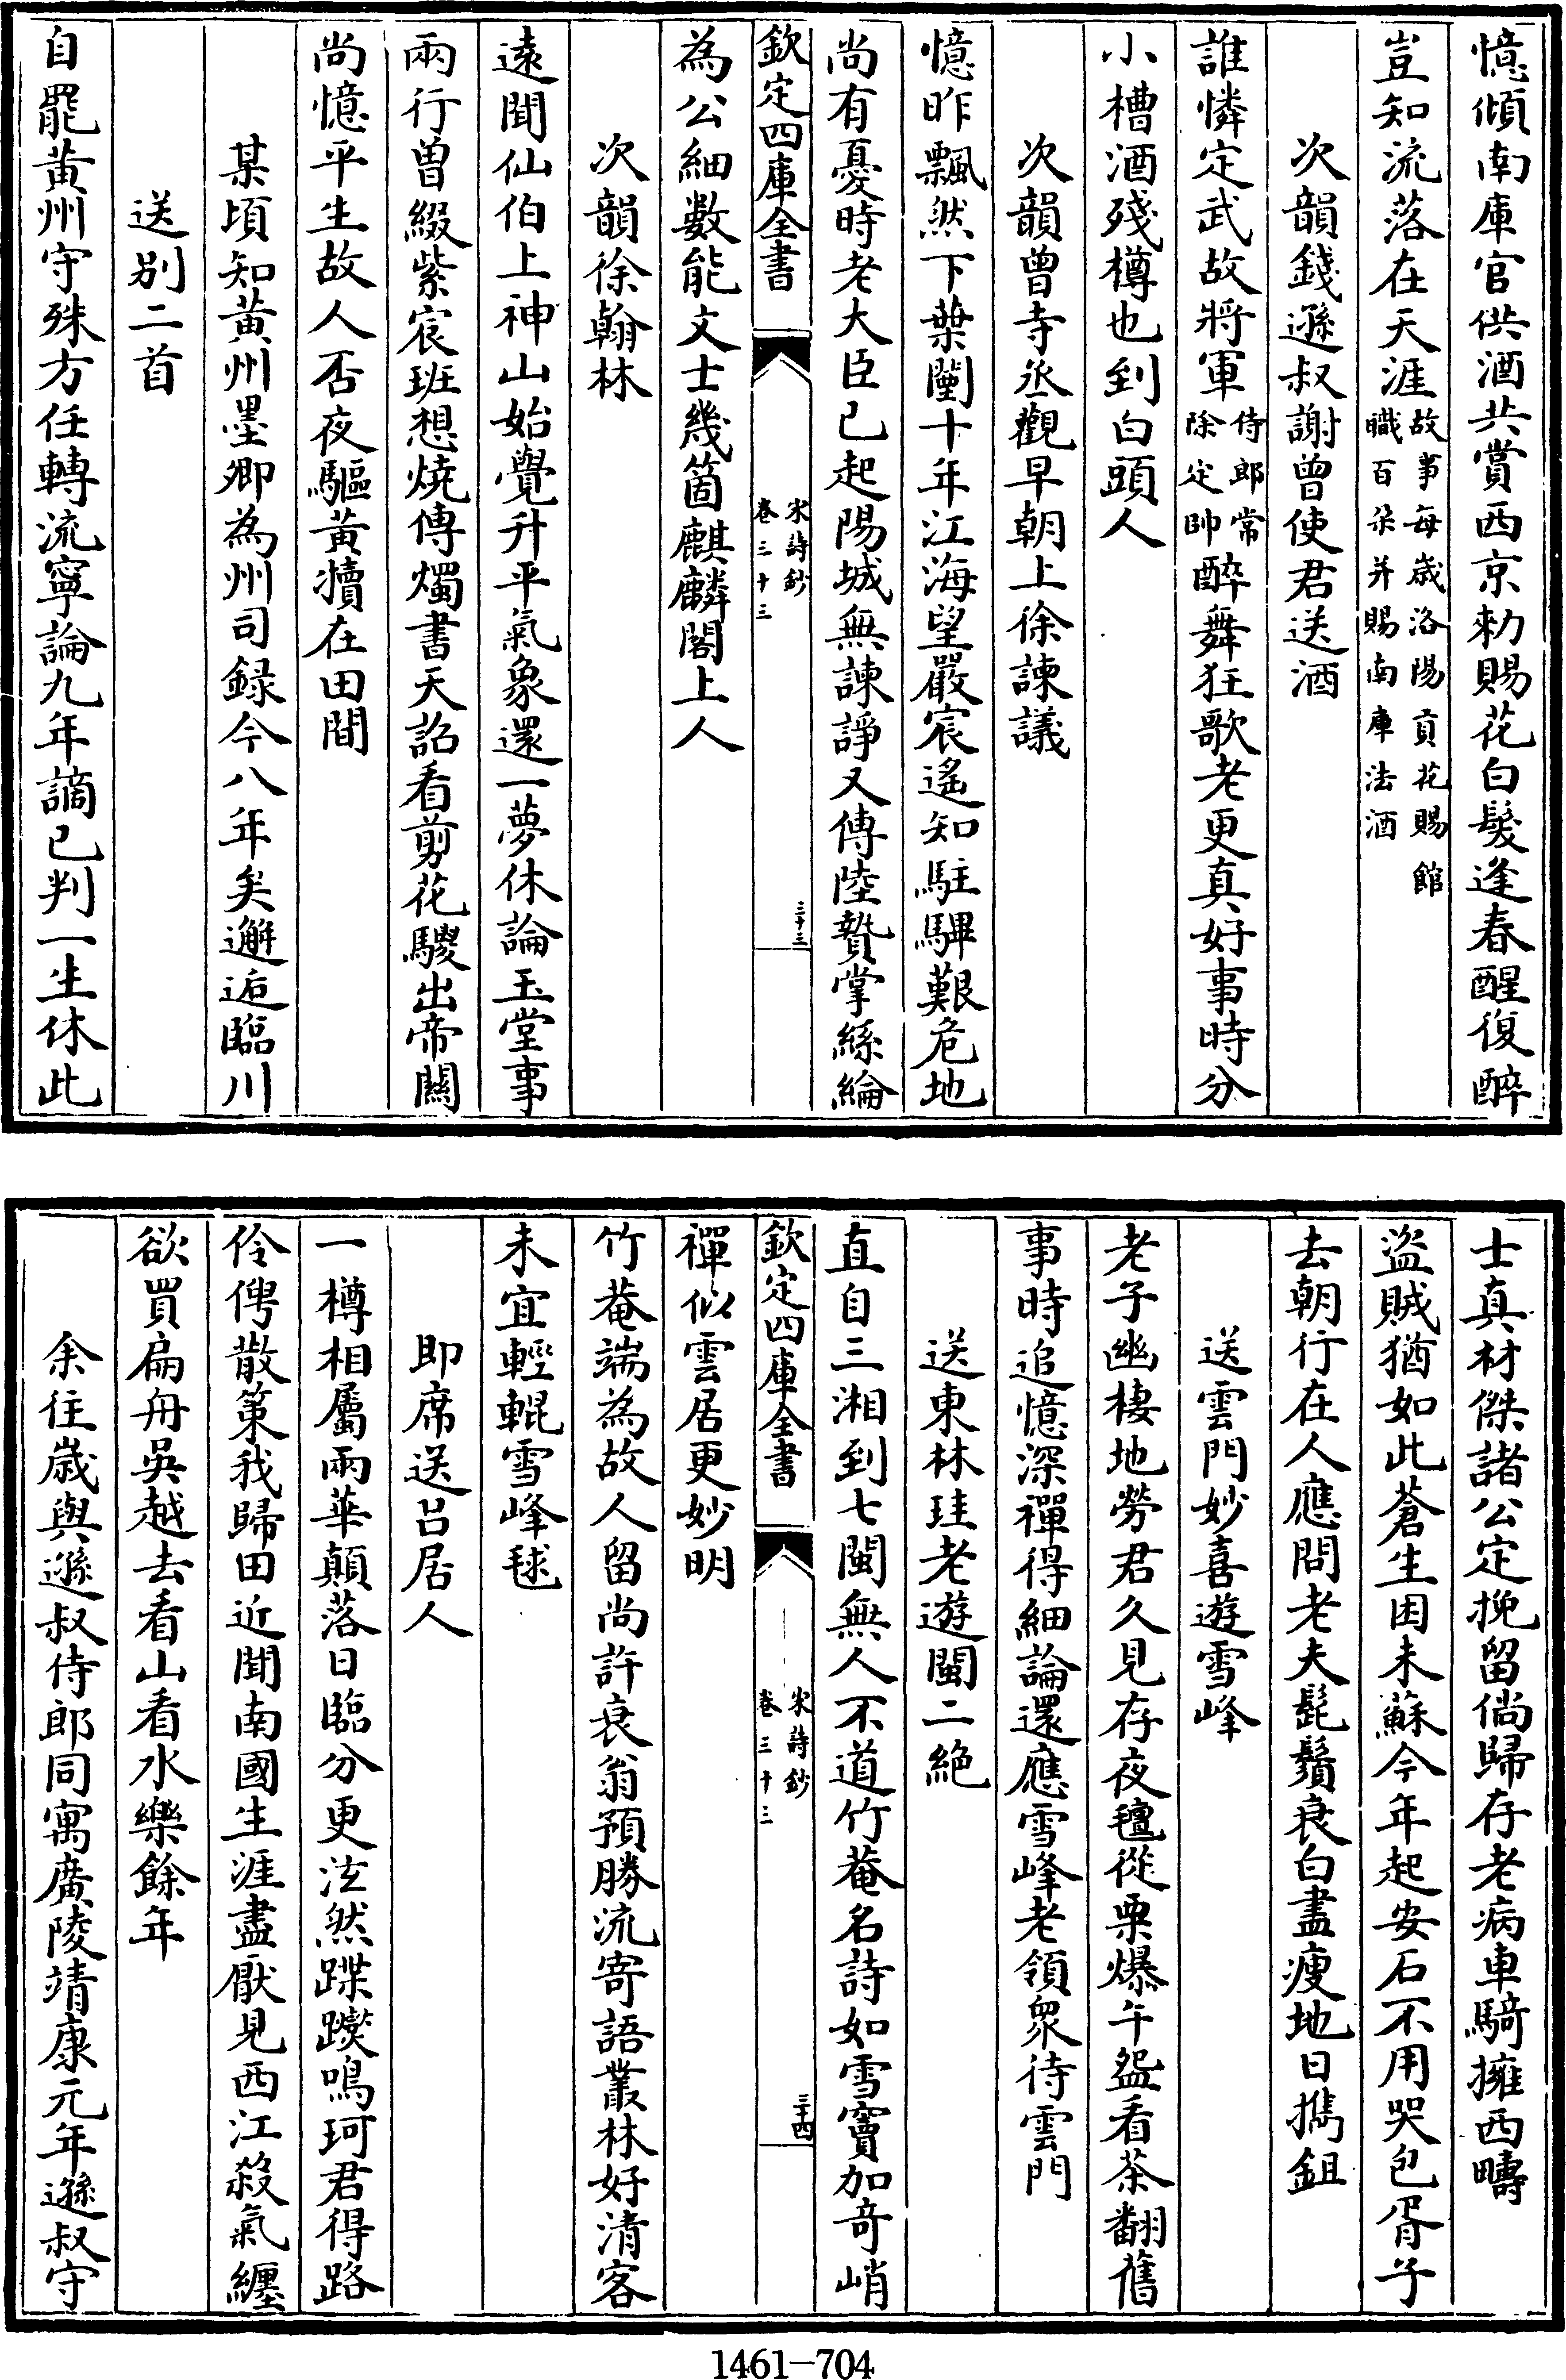 憶傾南庫官供酒共賞西京勑賜花白髮逢春醒復醉
豈知流落在天涯故事每歲洛陽貢花賜館職百朵并賜南庫法酒
次韻錢遜叔謝曾使君送酒
誰憐定武故將軍侍郎常除定帥醉舞狂歌老更真好事時分
小槽酒殘樽也到白頭人
次韻曾寺丞觀早朝上徐諫議
憶昨飄然下葉闉十年江海望嚴宸遙知駐驆艱危地
尚有憂時老大臣已起陽城無諫諍又傳陸贄掌絲綸
欽定四庫全書
宋詩鈔
卷三十三
三十三
為公細數能文士幾箇麒麟閣上人
次韻徐翰林
遠聞仙伯上神山始覺升平氣象還一夢休論玉堂事
兩行曽綴紫宸班想燒傳燭書天詔看剪花驄出帝關
尚憶平生故人否夜驅黃犢在田間
某頃知黃州墨卿為州司録今八年矣邂逅臨川
送别二首
自罷黃州守殊方任轉流寧論九年謫已判一生休此
士真材傑諸公定挽留倘歸存老病車騎擁西疇
盜賊猶如此蒼生困未蘇今年起安石不用哭包胥子
去朝行在人應問老夫髭鬚衰白盡瘦地日擕鉏
送雲門妙喜遊雪峰
老子幽棲地勞君久見存夜氊從栗爆午盌看茶翻舊
事時追憶深禪得細論還應雪峰老領眾待雲門
送東林珪老遊閩二絕
直自三湘到七閩無人不道竹菴名詩如雪竇加奇峭
欽定四庫全書
宋詩鈔
卷三十三
三十四
禪似雲居更妙明
竹菴端為故人留尚許衰翁預勝流寄語叢林好清客
未宜輕輥雪峰毬
即席送吕居人
一樽相屬兩華顛落日臨分更泫然蹀躞鳴珂君得路
伶俜散策我歸田近聞南國生涯盡厭見西江殺氣纏
欲買扁舟吳越去看山看水樂餘年
余往歳與遜叔侍郎同寓廣陵靖康元年遜叔守
1461-704